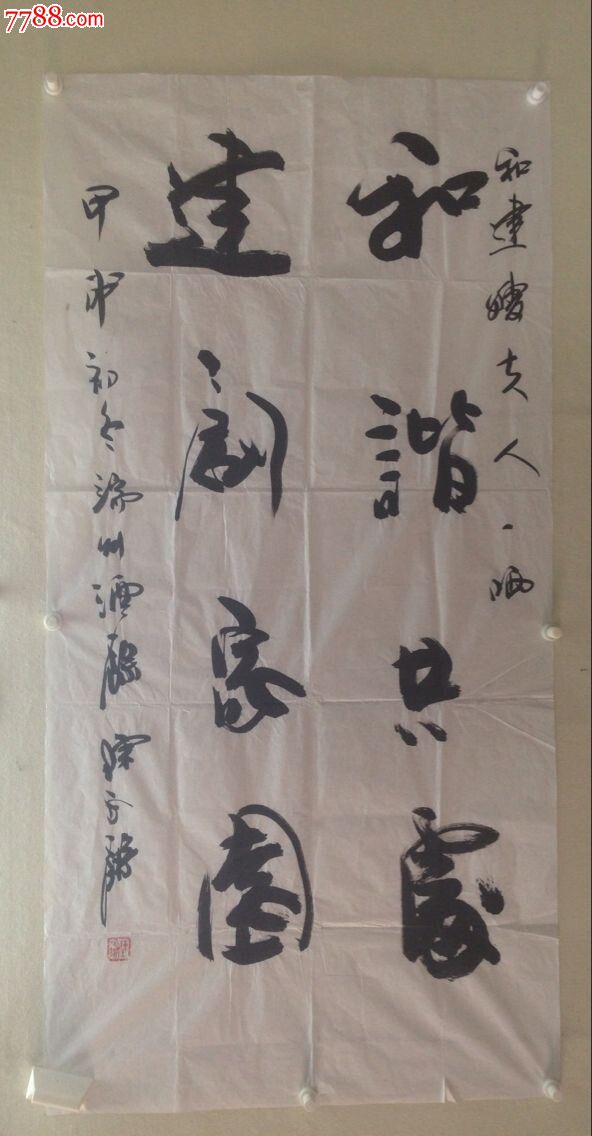 7788.com
和建嫂夫人一哂
和諧共處
建家園
甲申初冬端州